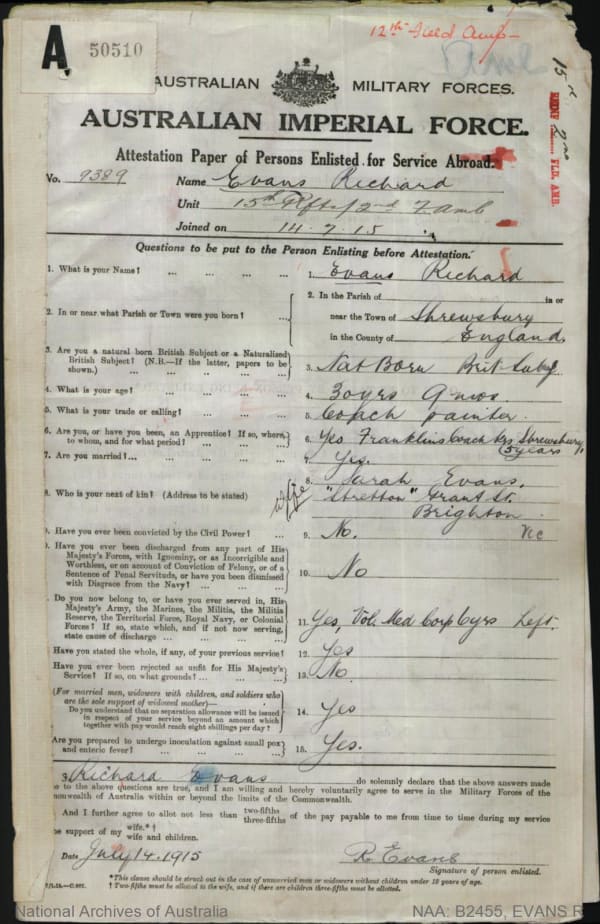 12th Field Amb
A 50510
15th
2nd
FLD. AMB.
AUSTRALIAN MILITARY FORCES.
AUSTRALIAN IMPERIAL FORCE.
Attestation Paper of Persons Enlisted for Service Abroad.
No. 9389 Name Evans Richard
Unit 15th Rfts/2nd F. Amb
Joined on 14.7.15
Questions to be put to the Person Enlisting before Attestation.
1. What is your Name? ... ... ... ... 1. Evans Richard
2. In or near what Parish or Town were you born? ... 2. In the Parish of in or
near the Town of Shrewsbury
in the County of England
3. Are you a natural born British Subject or a Naturalised
British Subject? (N.B.—If the latter, papers to be
shown.) ... ... ... ... 3. Nat Born Brit Subj.
4. What is your age? ... ... ... ... 4. 30yrs 9mos.
5. What is your trade or calling? ... ... ... 5. Coach painter.
6. Are you, or have you been, an Apprentice? If so, where,
to whom, and for what period? ... ... 6. Yes Franklins Coach Shrewsbury,
(5 years
7. Are you married? ... ... ... ... 7. Yes.
8. Who is your next of kin? (Address to be stated) wife 8. Sarah Evans,
"Stretton" Grant St.
Brighton
Vic
9. Have you ever been convicted by the Civil Power? ... 9. No.
Have you ever been discharged from any part of His
Majesty's Forces, with Ignominy, or as Incorrigible and
Worthless, or on account of Conviction of Felony, or of a
Sentence of Penal Servitude, or have you been dismissed
with Disgrace from the Navy? ... ... ... 10. No
Do you now belong to, or have you ever served in, His
Majesty's Army, the Marines, the Militia, the Militia
Reserve, the Territorial Force, Royal Navy, or Colonial
Forces? If so, state which, and if not now serving,
state cause of discharge ... ... ... 11. Yes, Vol. Med Corp 6yrs Left.
Have you stated the whole, if any, of your previous service? 12. Yes
Have you ever been rejected as unfit for His Majesty's
Service? If so, on what grounds? ... ... ... 13. No.
(For married men, widowers with children, and soldiers who
are the sole support of widowed mother)—
Do you understand that no separation allowance will be issued
in respect of your service beyond an amount which
together with pay would reach eight shillings per day? 14. Yes
Are you prepared to undergo inoculation against small pox
and enteric fever? ... ... ... ... 15. Yes.
Richard Evans do solemnly declare that the above answers made
to the above questions are true, and I am willing and hereby voluntarily agree to serve in the Military Forces of the
monwealth of Australia within or beyond the limits of the Commonwealth.
And I further agree to allot not less than two-fifths three-fifths of the pay payable to me from time to time during my service
support of my wife.*†
wife and children.
Date July 14. 1915 R Evans
Signature of person enlisted.
*This clause should be struck out in the case of unmarried men or widowers without children under 18 years of age.
† Two-fifths must be allotted to the wife, and if there are children three-fifths must be allotted.
National Archives of Australia NAA: B2455, EVANS R